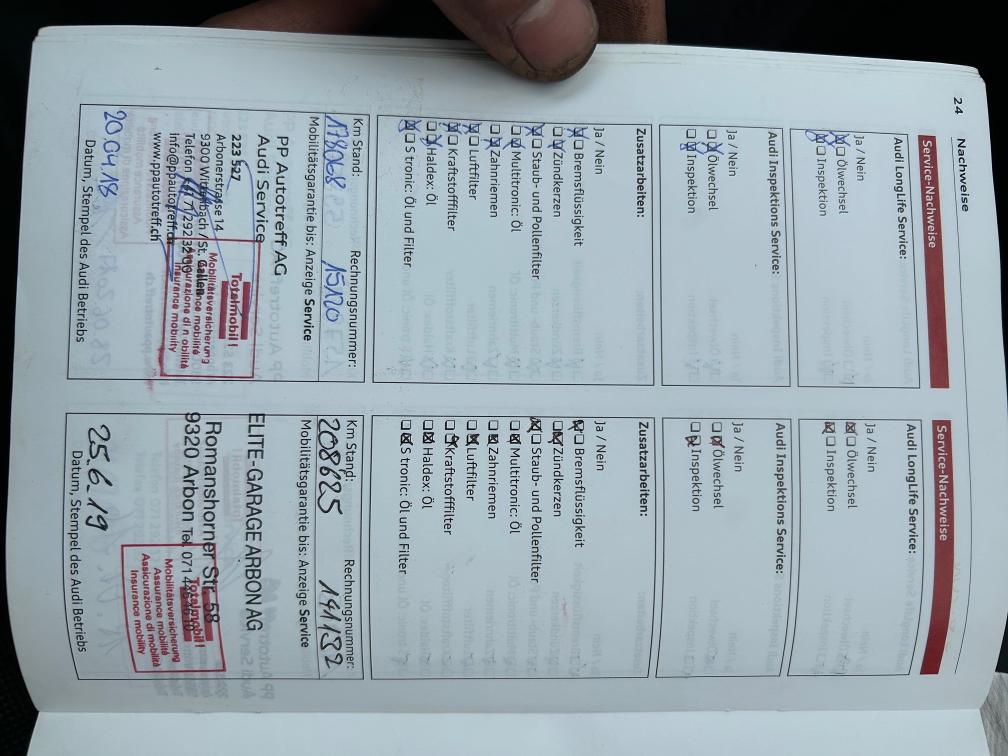 24 Nachweise
Service-Nachweise
Audi LongLife Service:
Ja / Nein
Ölwechsel
Inspektion
Audi Inspektions Service:
Ja / Nein
Ölwechsel
Inspektion
Zusatzarbeiten:
Ja / Nein
Bremsflüssigkeit
Zündkerzen
Staub- und Pollenfilter
Multitronic: Öl
Zahnriemen
Luftfilter
Kraftstofffilter
Haldex: Öl
S tronic: Öl und Filter
Km Stand: Rechnungsnummer:
178068 15120
Mobilitätsgarantie bis: Anzeige Service
PP Autotreff AG
Audi Service
223 527
Arbonerstrasse 14
9300 Wittenbach / St. Gallen
Telefon 071 292 32 00
info@ppautotreff.ch
www.ppautotreff.ch
Totalmobil!
Mobilitätsversicherung
Assurance mobilité
Assicurazione di mobilità
Insurance mobility
20.04.18
Datum, Stempel des Audi Betriebs
Service-Nachweise
Audi LongLife Service:
Ja / Nein
Ölwechsel
Inspektion
Audi Inspektions Service:
Ja / Nein
Ölwechsel
Inspektion
Zusatzarbeiten:
Ja / Nein
Bremsflüssigkeit
Zündkerzen
Staub- und Pollenfilter
Multitronic: Öl
Zahnriemen
Luftfilter
Kraftstofffilter
Haldex: Öl
S tronic: Öl und Filter
Km Stand: Rechnungsnummer:
208625 141132
Mobilitätsgarantie bis: Anzeige Service
ELITE-GARAGE ARBON AG
Romanshorner Str. 58
9320 Arbon Tel. 071
Totalmobil!
Mobilitätsversicherung
Assurance mobilité
Assicurazione di mobilità
Insurance mobility
25.6.19
Datum, Stempel des Audi Betriebs